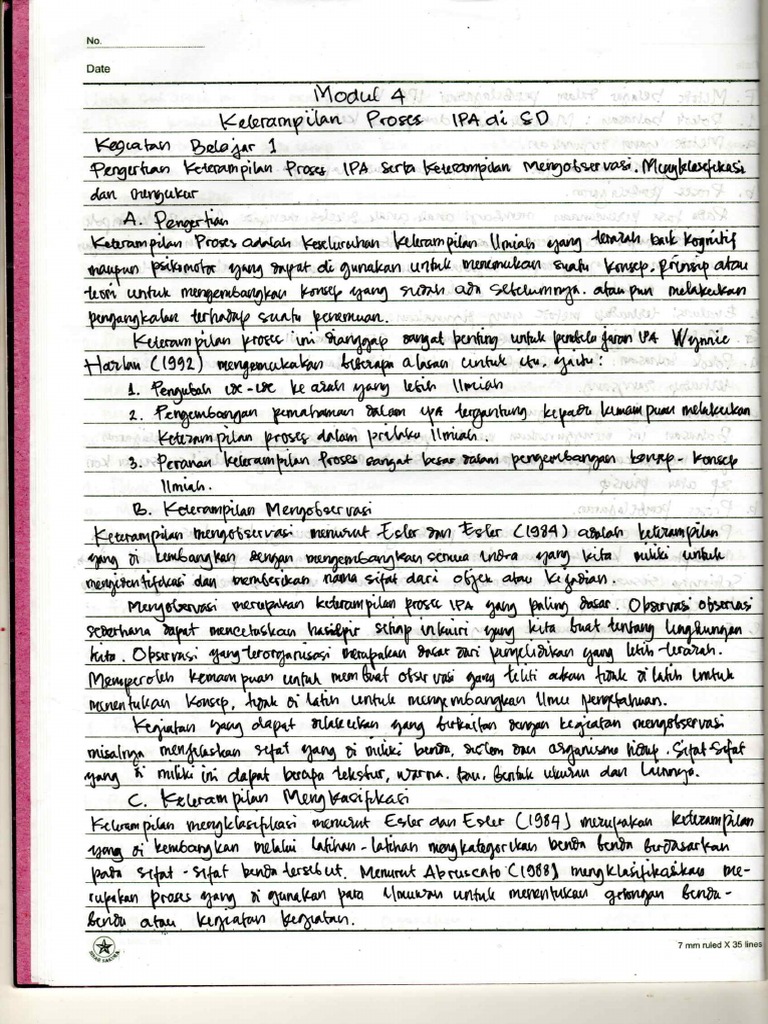 No.
Date
Modul 4
Keterampilan Proses IPA di SD
Kegiatan Belajar 1
Pengertian Keterampilan Proses IPA serta Keterampilan Mengobservasi, Mengklasifikasi
dan mengukur
A. Pengertian
Keterampilan Proses adalah Keseluruhan Keterampilan Ilmiah yang terarah baik Kognitif
maupun psikomotor yang dapat di gunakan untuk menemukan suatu konsep, prinsip atau
teori untuk mengembangkan konsep yang sudah ada sebelumnya, ataupun melakukan
penyangkalan terhadap suatu penemuan.
Keterampilan proses ini dianggap sangat penting untuk pembelajaran IPA Wynnie
Harlan (1992) mengemukakan beberapa alasan untuk itu, yaitu :
1. Pengubah ide-ide ke arah yang lebih Ilmiah
2. Pengembangan pemahaman dalam IPA tergantung kepada kemampuan melakukan
Keterampilan proses dalam prilaku Ilmiah.
3. Peranan keterampilan Proses sangat besar dalam pengembangan konsep-konsep
Ilmiah.
B. Keterampilan Mengobservasi
Keterampilan mengobservasi menurut Esler dan Esler (1984) adalah keterampilan
yang di kembangkan dengan mengembangkan semua indra yang kita miliki untuk
mengidentifikasi dan memberikan nama sifat dari objek atau kejadian.
Mengobservasi merupakan keterampilan proses IPA yang paling dasar. Observasi observasi
sederhana dapat mencetuskan hampir setiap inkuiri yang kita buat tentang lingkungan
kita. Observasi yang terorganisasi merupakan dasar dari penyelidikan yang lebih terarah.
Memperoleh kemampuan untuk membuat observasi yang teliti akan tidak di latih untuk
menentukan konsep, tidak di latih untuk mengembangkan Ilmu pengetahuan.
Kegiatan yang dapat dilakukan yang berkaitan dengan kegiatan mengobservasi
misalnya menjelaskan sifat yang di miliki benda, sistem dan organisme hidup. Sifat-sifat
yang di miliki ini dapat berupa tekstur, warna, bau, bentuk ukuran dan lainnya.
C. Keterampilan Mengkasifikasi
Keterampilan mengklasifikasi menurut Esler dan Esler (1984) merupakan keterampilan
yang di kembangkan melalui latihan-latihan mengkategorikan benda benda berdasarkan
pada sifat-sifat benda tersebut. Menurut Abruscato (1988) mengklasifikasikan me-
rupakan proses yang di gunakan para Ilmuwan untuk menentukan golongan benda-
benda atau kegiatan kegiatan.
7 mm ruled X 35 lines